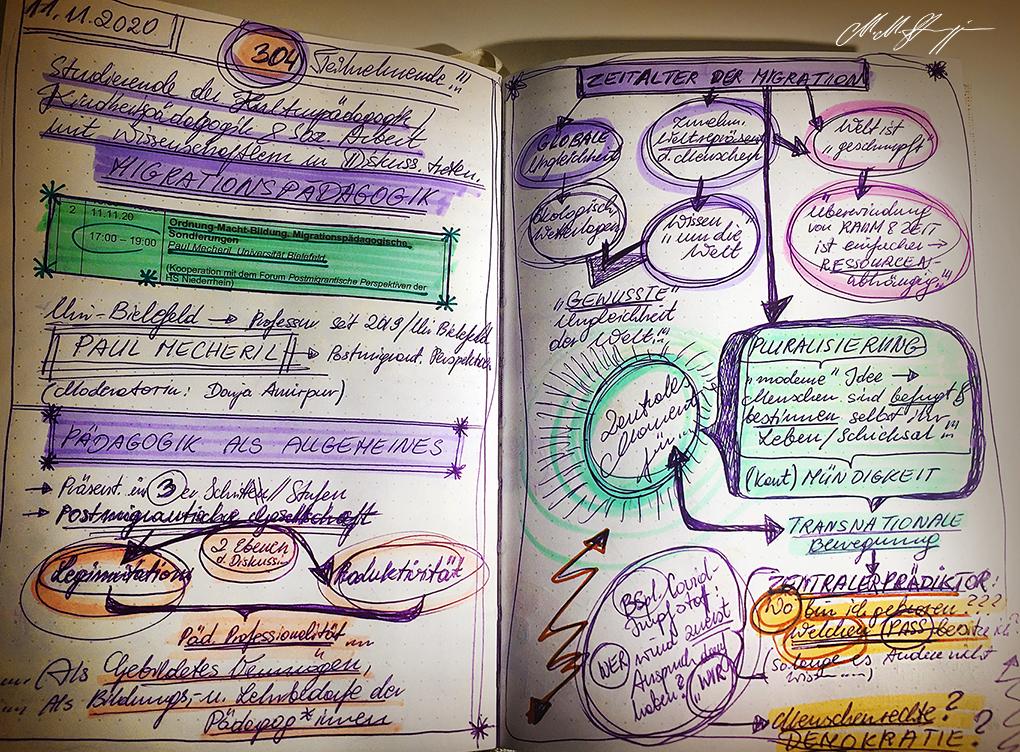 11.11.2020
304 Teilnehmende "!!
Studierende der Kulturpädagogik /
Kindheitspädagogik & Soz. Arbeit
mit Wissenschaftlern in Diskuss. treten.
MIGRATIONSPÄDAGOGIK
2 11.11.20
17:00 – 19:00
Ordnung-Macht-Bildung. Migrationspädagogische
Sondierungen
Paul Mecheril, Universität Bielefeld
(Kooperation mit dem Forum Postmigrantische Perspektiven der
HS Niederrhein)
Uni-Bielefeld → Professur seit 2019/Uni Bielefeld
PAUL MECHERIL → Postmigrant. Perspektiven
(Moderatorin: Donja Amirpur)
PÄDAGOGIK ALS ALLGEMEINES
→ Präsent. in 3er Schritten/Stufen
→ Postmigrantische Gesellschaft
2 Ebenen
d. Diskussion
Legimitation
Produktivität
Päd. Professionalität
(Als Gebildetes Vermögen,
Als Bildungs- u. Lehrbedarfe der
Pädagog*innen
ZEITALTER DER MIGRATION
GLOBALE
Ungleichheit
Zunehm.
d. Menschen
Welt ist
"geschrumpft"
Ökologisch
Wetterlagen
Wissen
"um die
Welt
Überwindung
von RAUM & ZEIT
ist einfacher →
RESSOURCEN-
abhängig "!!
"GEWUSSTE"
Ungleichheit
der Welt "!!
Zentrales
Moment
für "!!
PLURALISIERUNG
"moderne" Idee →
Menschen sind befugt &
bestimmen selbst ihr
Leben/Schicksal "!!
(Kant) MÜNDIGKEIT
TRANSNATIONALE
Bewegung
ZENTRALER PRÄDIKTOR:
Wo bin ich geboren???
Welchen PASS besitze ich?
(Solange es Andere nicht
wissen)
Bspl. Covid-
Impfstoff:
WER wird zuerst
Anspruch drauf
haben? "WIR"
Menschenrechte?
DEMOKRATIE?